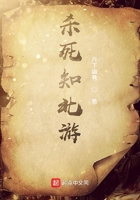 杀死知北游
著
起点中文网